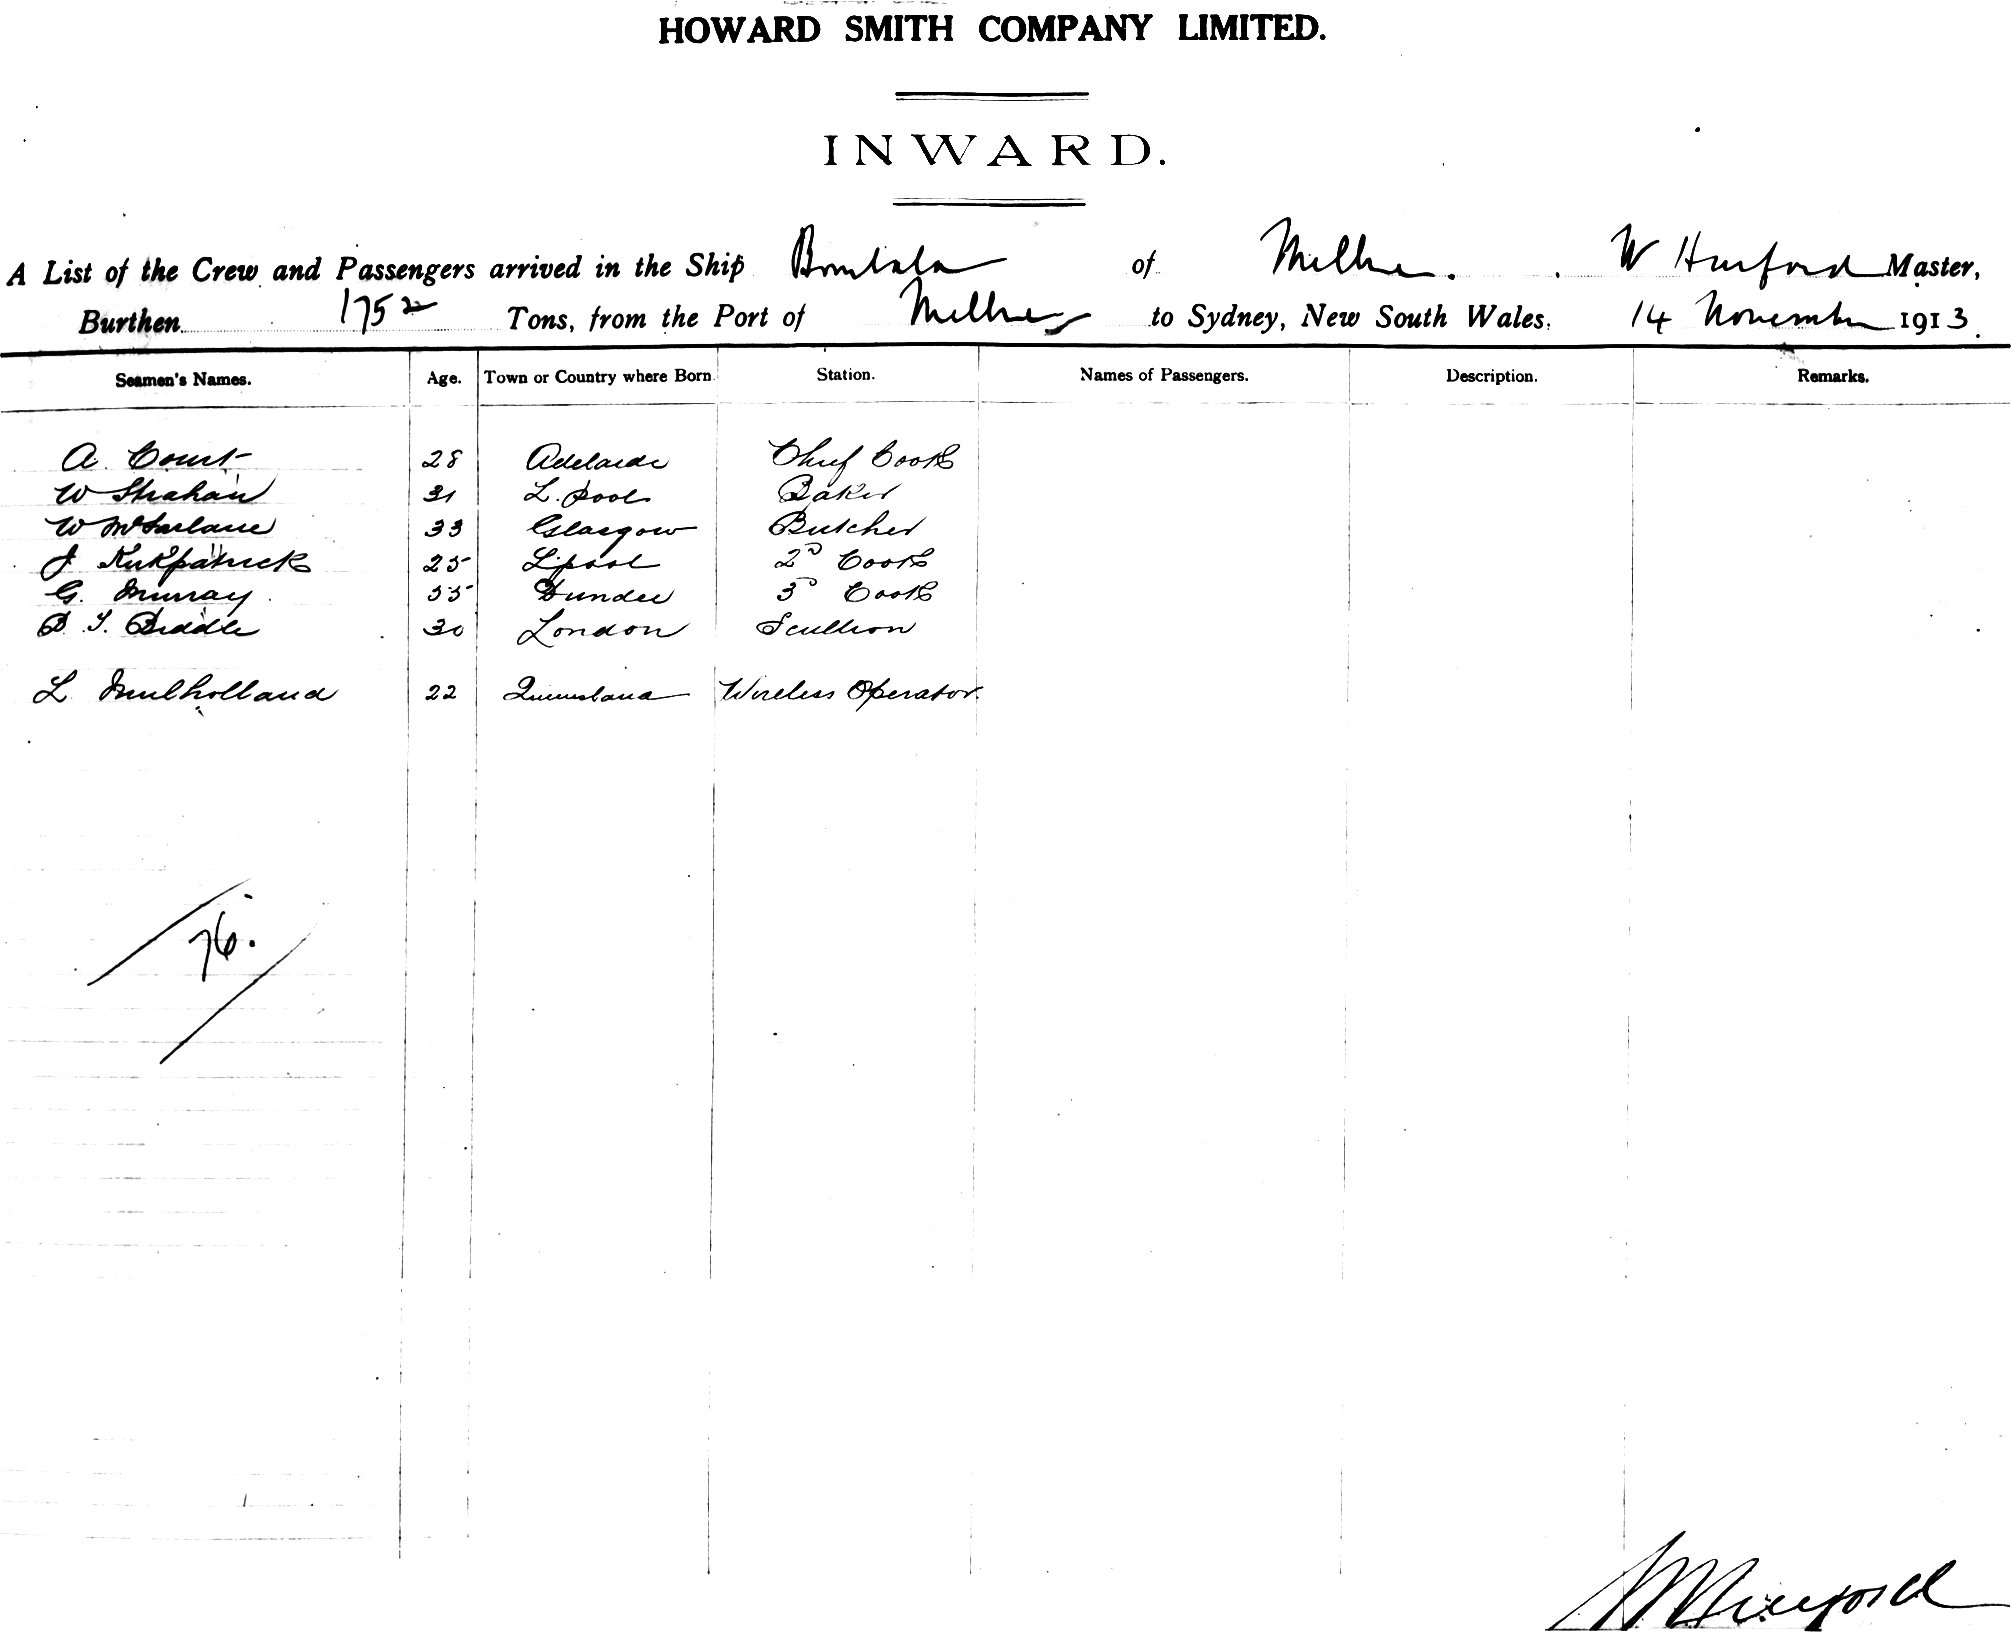 HOWARD SMITH COMPANY LIMITED.
INWARD.
A List of the Crew and Passengers arrived in the Ship Bombala of Melbne. W Hurford Master,
Burthen 1752 Tons, from the Port of Melbne to Sydney, New South Wales. 14 November 1913.
Seamen's Names. Age. Town or Country where Born Station. Names of Passengers. Description. Remarks.
A. Court 28 Adelaide Chief Cook
W Strahan 31 L.pool Baker
W McFarlane 33 Glasgow Butcher
J Kirkpatrick 25 L'pool 2D Cook
G. Murray 55 Dundee 3D Cook
B. T. Biddle 30 London Scullion
L Mulholland 22 Queensland Wireless Operator.
76.
W Hurford